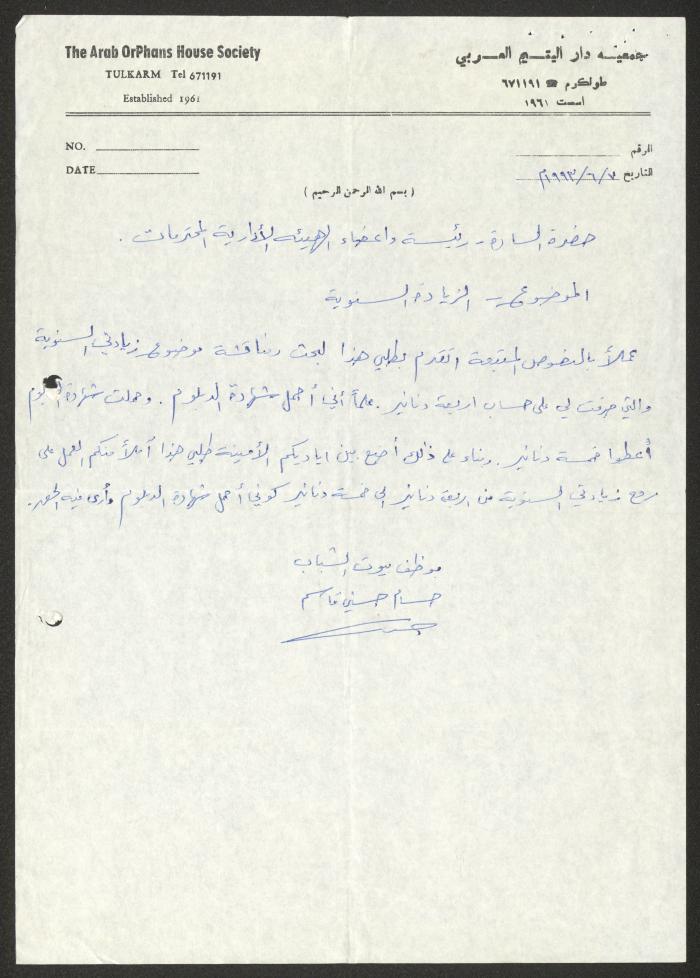 The Arab OrPhans House Society
TULKARM Tel 671191
Established 1961
جمعية دار اليتيم العربي
طولكرم ☎ ٦٧١١٩١
اسست ١٩٦١
NO.
DATE
الرقم
التاريخ ٧/٦/١٩٩٣م
( بسم الله الرحمن الرحيم )
حضرة السادة - رئيسة واعضاء الهيئة الأدارية المحترمات .
الموضوع - الزيادة السنوية
عملاً بالنصوص المتبعة اتقدم بطلبي هذا لبحث ومناقشة موضوع زيادتي السنوية
والتي صرفت لي على حساب اربعة دنانير . علماً أني أحمل شهادة الدبلوم . وحملت شهادة الدبلوم
أعطوا خمسة دنانير . وبناء على ذلك أضع بين اياديكم الأمينة طلبي هذا آملاً منكم العمل على
رفع زيادتي السنوية من اربعة دنانير الى خمسة دنانير كوني أحمل شهادة الدبلوم وأرى فيه الحق.
موظف بيوت الشباب
حسام حسني قاسم